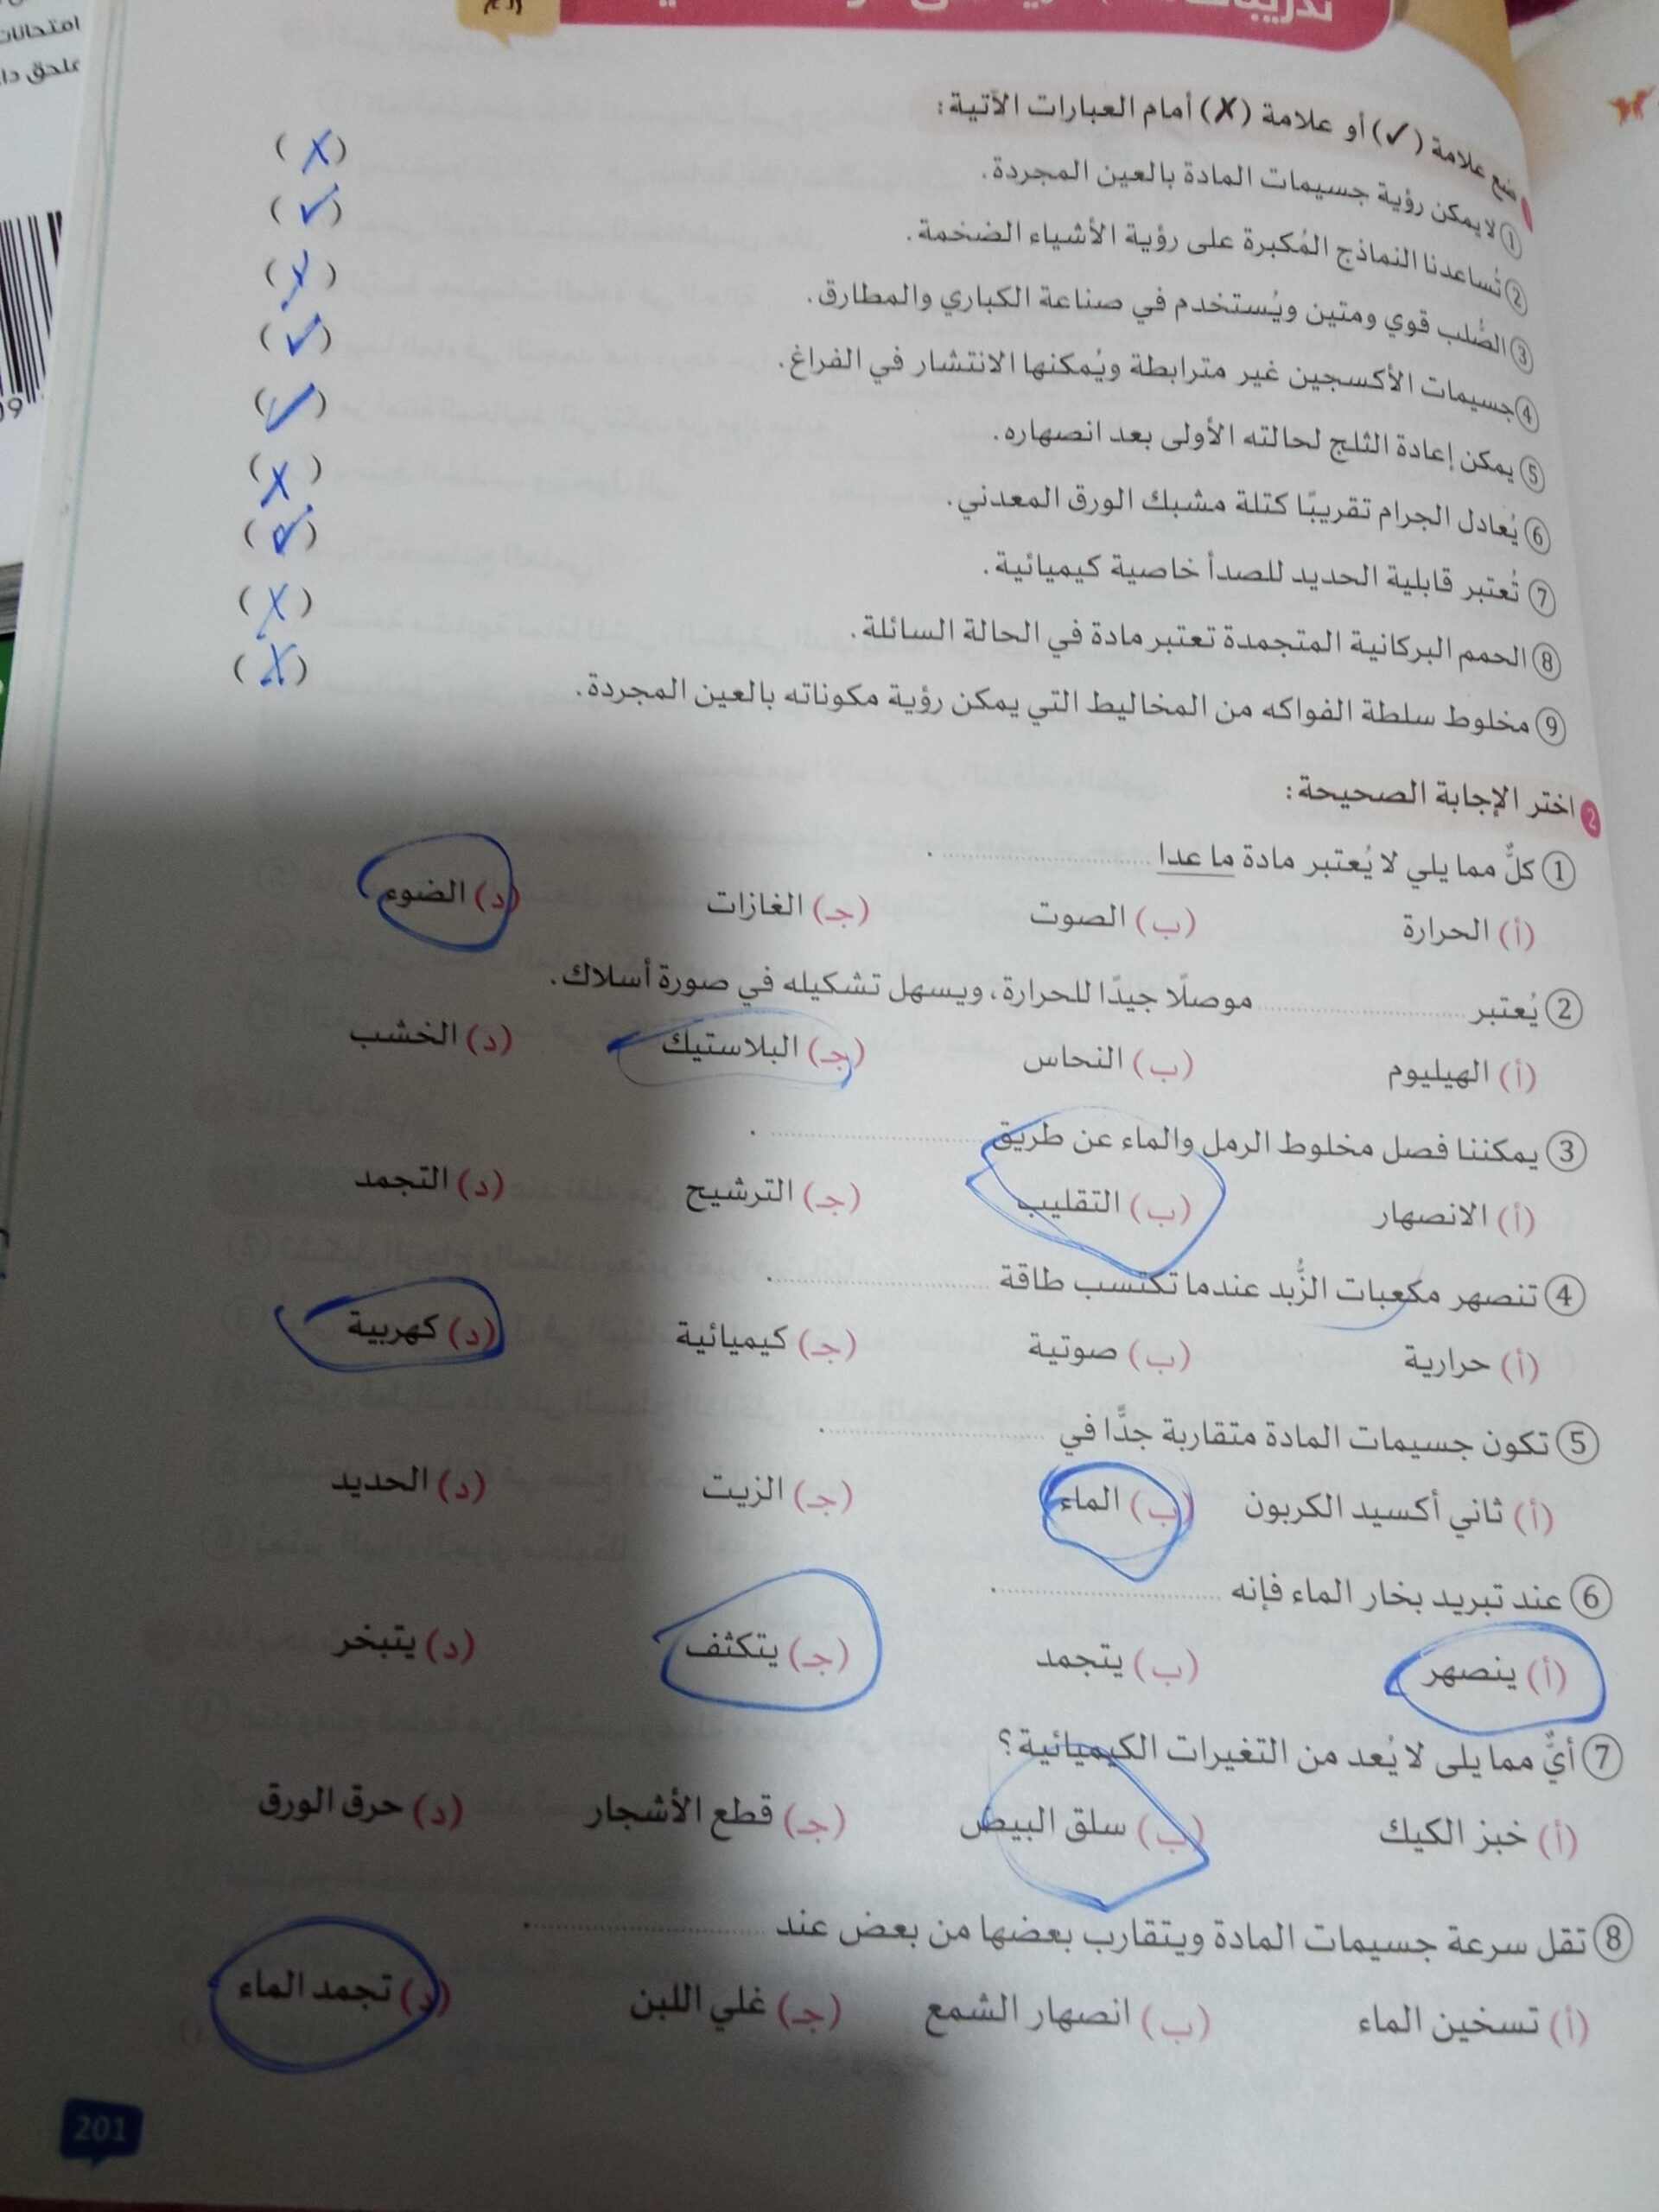 امتحانات
ملحق
ضع علامة (✓) أو علامة (X) أمام العبارات الآتية:
① لا يمكن رؤية جسيمات المادة بالعين المجردة. (X)
② تُساعدنا النماذج المُكبرة على رؤية الأشياء الضخمة. (✓)
③ الصُّلب قوي ومتين ويُستخدم في صناعة الكباري والمطارق. (X)
④ جسيمات الأكسجين غير مترابطة ويُمكنها الانتشار في الفراغ. (✓)
⑤ يمكن إعادة الثلج لحالته الأولى بعد انصهاره. (✓)
⑥ يُعادل الجرام تقريبًا كتلة مشبك الورق المعدني. (X)
⑦ تُعتبر قابلية الحديد للصدأ خاصية كيميائية. (✓)
⑧ الحمم البركانية المتجمدة تعتبر مادة في الحالة السائلة. (X)
⑨ مخلوط سلطة الفواكه من المخاليط التي يمكن رؤية مكوناته بالعين المجردة. (X)
2 اختر الإجابة الصحيحة:
① كلٌّ مما يلي لا يُعتبر مادة ما عدا ..................... .
(أ) الحرارة (ب) الصوت (جـ) الغازات (د) الضوء
② يُعتبر ..................... موصلًا جيدًا للحرارة، ويسهل تشكيله في صورة أسلاك.
(أ) الهيليوم (ب) النحاس (جـ) البلاستيك (د) الخشب
③ يمكننا فصل مخلوط الرمل والماء عن طريق ..................... .
(أ) الانصهار (ب) التقليب (جـ) الترشيح (د) التجمد
④ تنصهر مكعبات الزُّبد عندما تكتسب طاقة ..................... .
(أ) حرارية (ب) صوتية (جـ) كيميائية (د) كهربية
⑤ تكون جسيمات المادة متقاربة جدًّا في ..................... .
(أ) ثاني أكسيد الكربون (ب) الماء (جـ) الزيت (د) الحديد
⑥ عند تبريد بخار الماء فإنه ..................... .
(أ) ينصهر (ب) يتجمد (جـ) يتكثف (د) يتبخر
⑦ أيٌّ مما يلى لا يُعد من التغيرات الكيميائية؟
(أ) خبز الكيك (ب) سلق البيض (جـ) قطع الأشجار (د) حرق الورق
⑧ تقل سرعة جسيمات المادة ويتقارب بعضها من بعض عند ..................... .
(أ) تسخين الماء (ب) انصهار الشمع (جـ) غلي اللبن (د) تجمد الماء
201